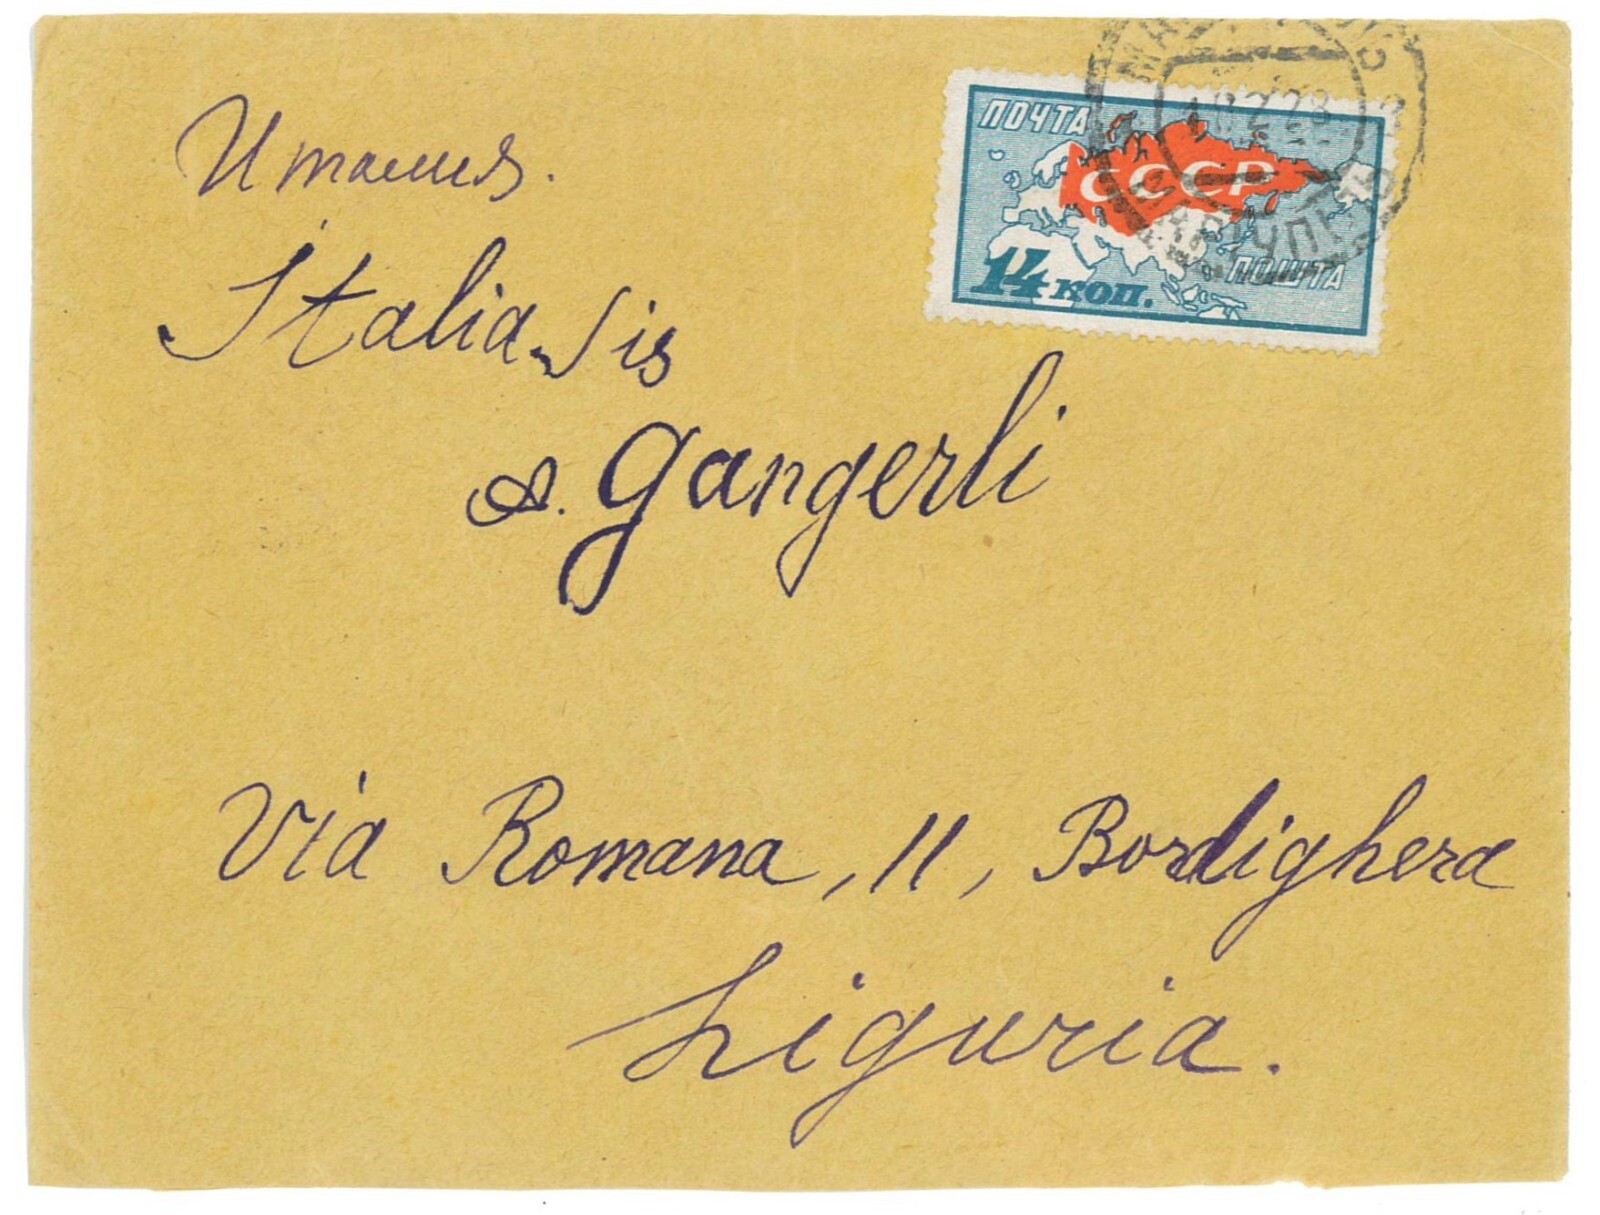 ПОЧТА
СССР
14 КОП.
ПОШТА
МАРІУПІЛЬ
Италия.
Italia. Sis
A. Gangerli
Via Romana, 11, Bordighera
Liguria.